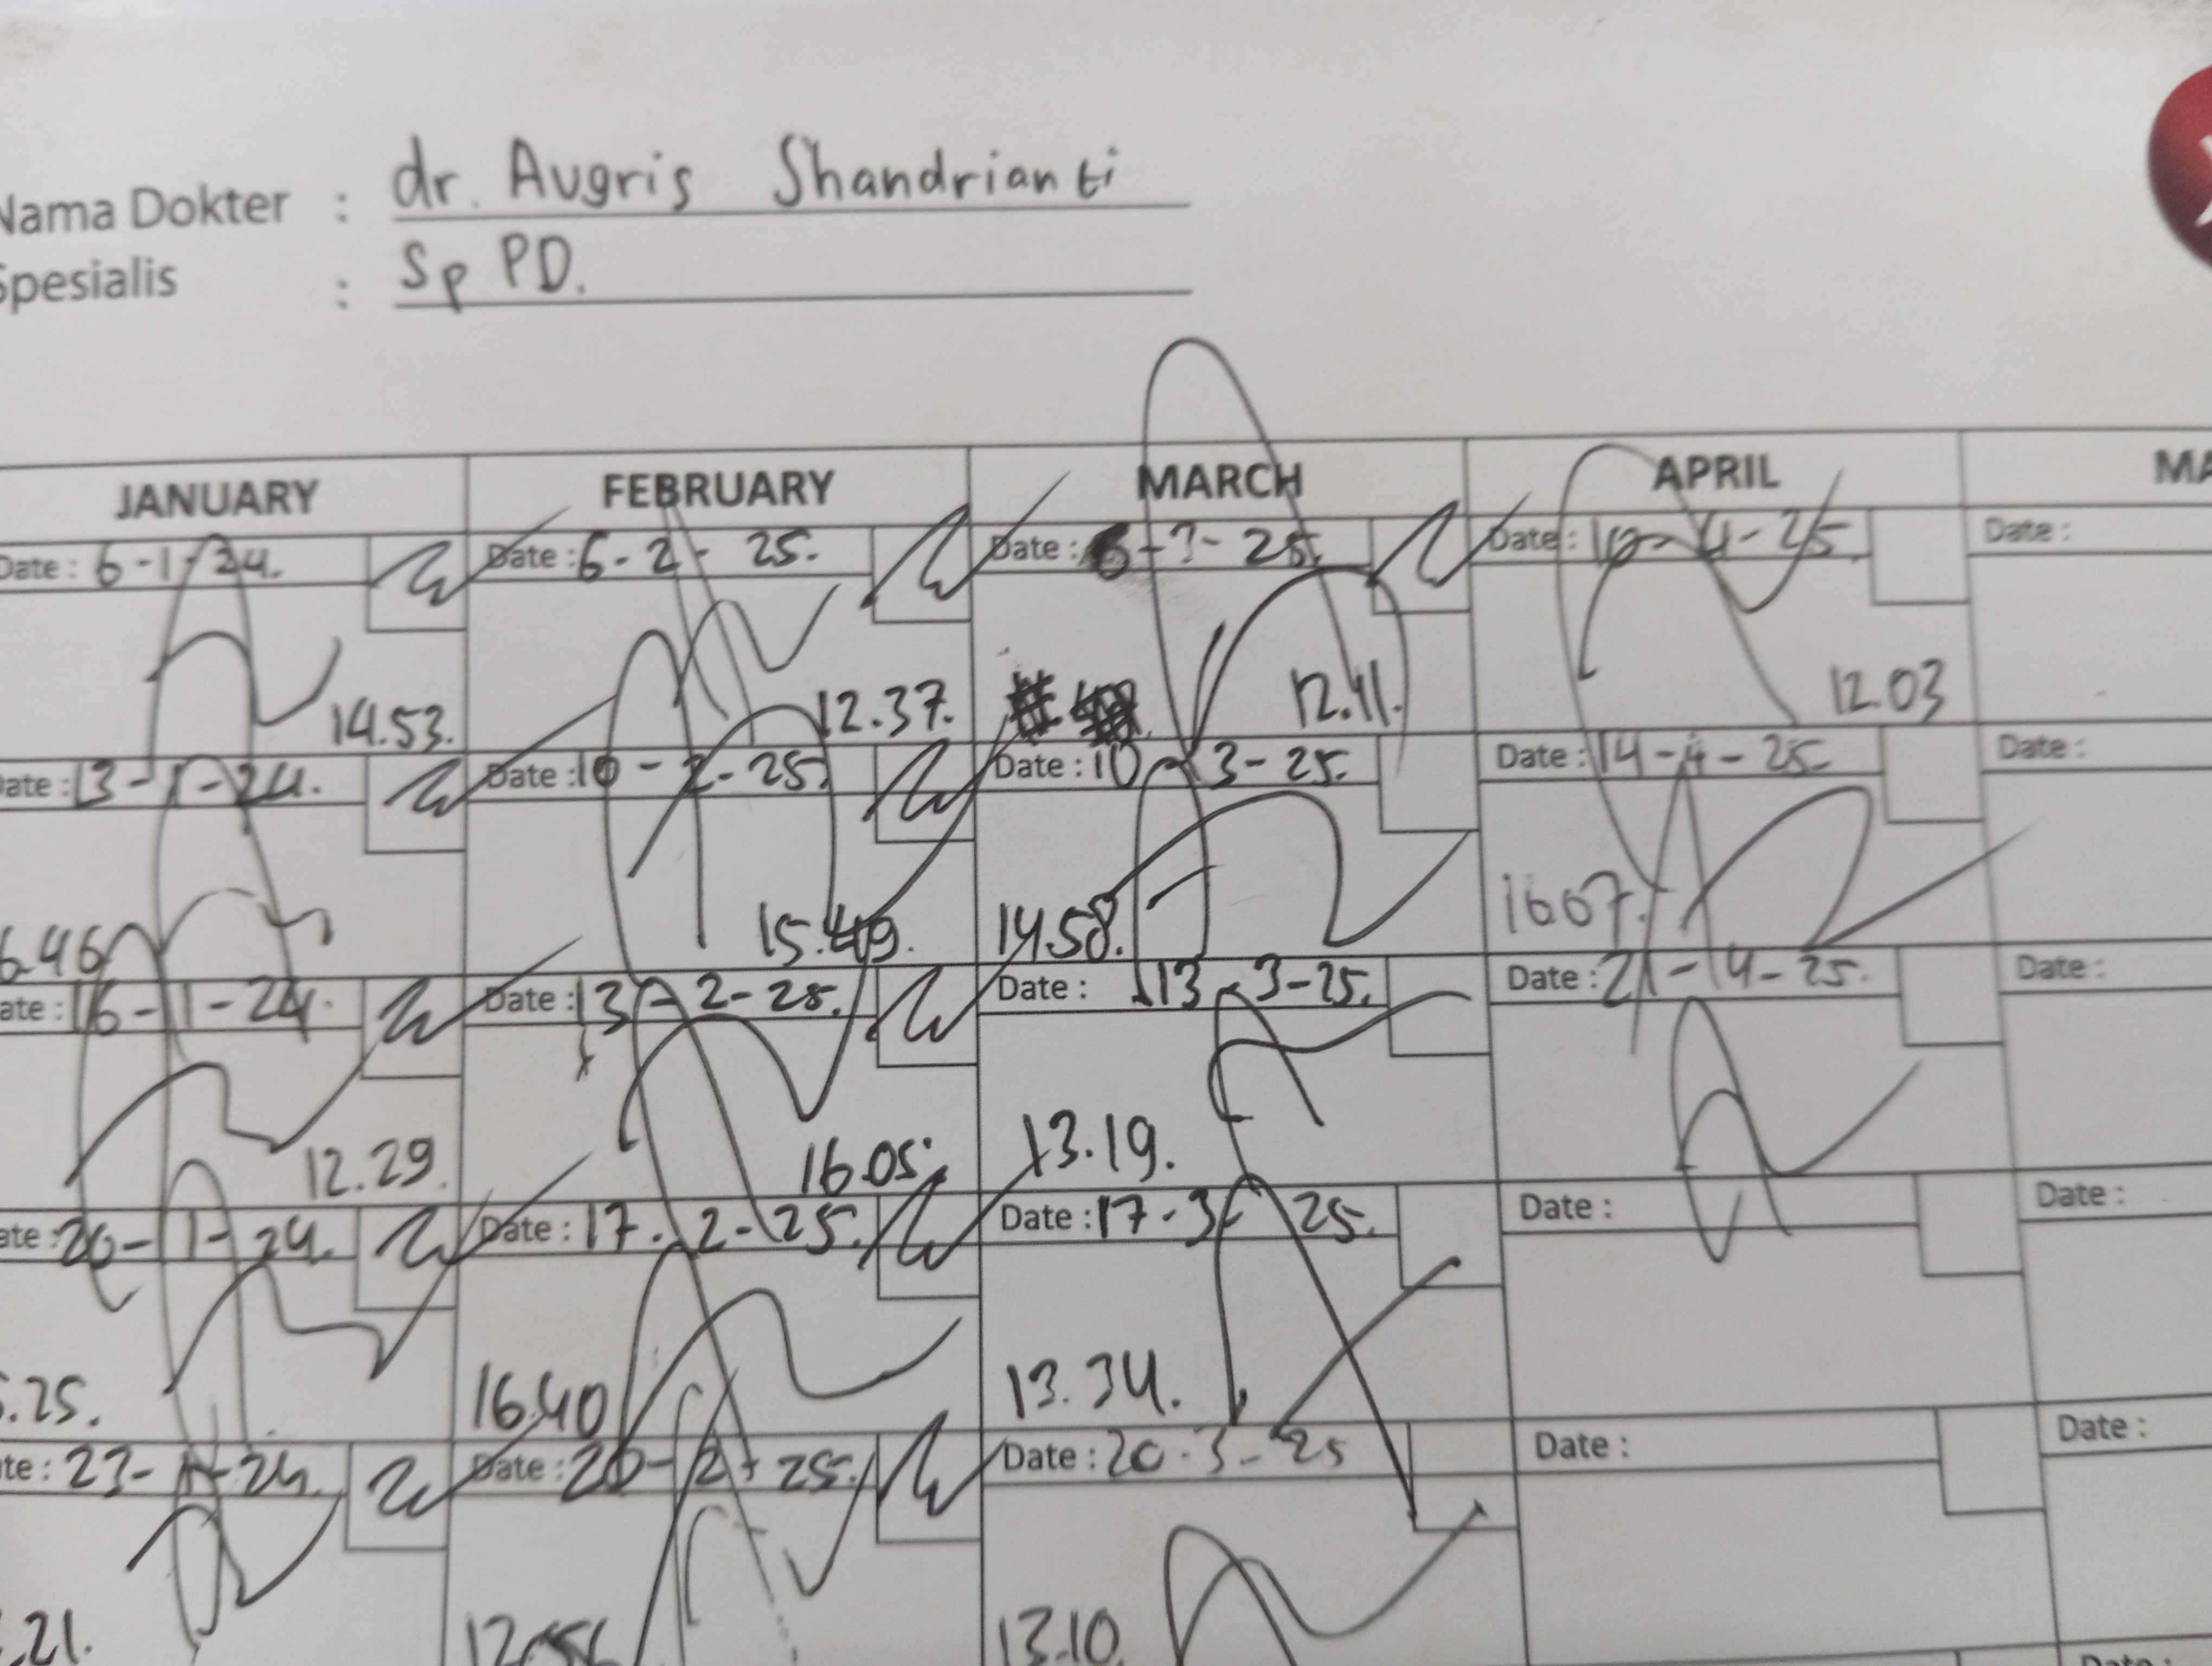 Nama Dokter : dr. Augris Shandrianti
Spesialis : Sp PD.
JANUARY FEBRUARY MARCH APRIL
Date : 6-1-24. Date : 6-2-25. Date : 6-3-25. Date : 10-4-25.
14.53. 12.37. 12.11. 12.03
Date : 13-1-24. Date : 10-2-25. Date : 10-3-25. Date : 14-4-25. Date :
15.49. 14.58. 16.07.
Date : 16-1-24. Date : 13-2-25. Date : 13-3-25. Date : 21-4-25. Date :
12.29. 16.05. 13.19.
Date : 20-1-24. Date : 17-2-25. Date : 17-3-25. Date : Date :
.25. 16.40 13.34.
Date : 23-1-24. Date : 20-2-25. Date : 20-3-25 Date : Date :
.21. 13.10.